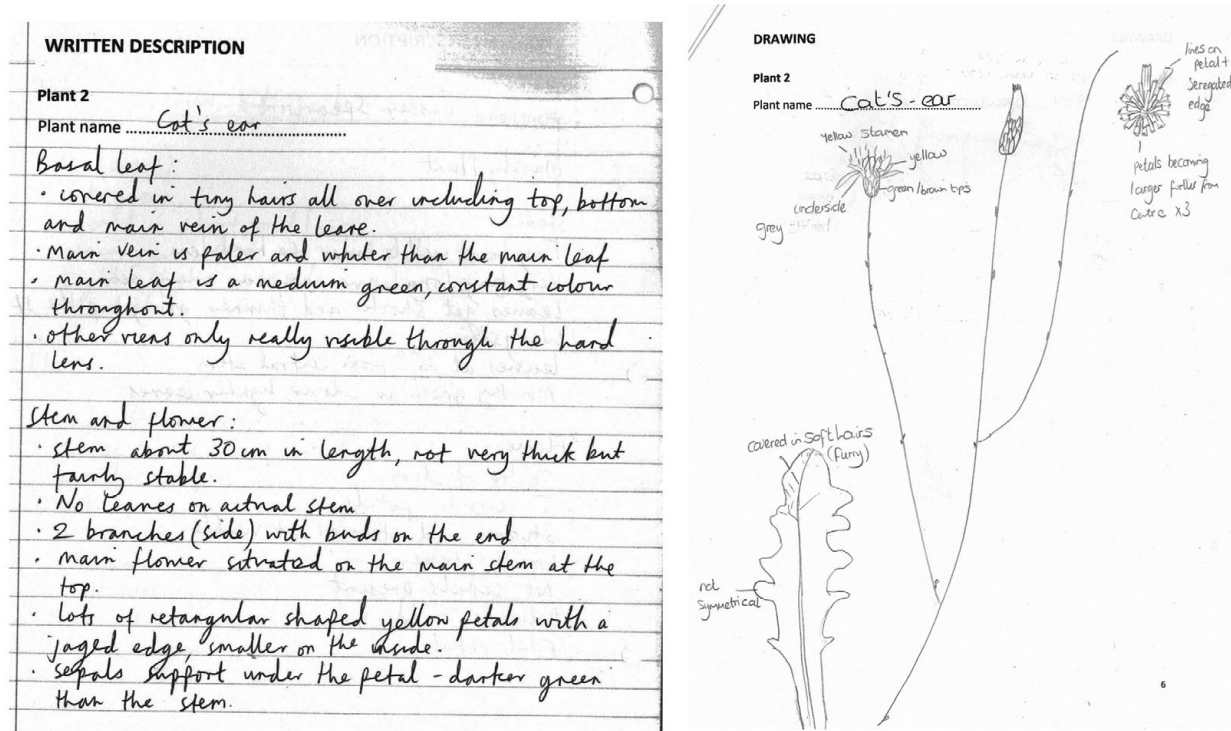 WRITTEN DESCRIPTION
Plant 2
Plant name Cat's ear
Basal leaf :
· covered in tiny hairs all over including top, bottom
and main vein of the leave.
· Main vein is paler and whiter than the main leaf
· main leaf is a medium green, constant colour
throughout.
· other viens only really visible through the hand
lens.
Stem and flower :
· stem about 30 cm in length, not very thick but
fairly stable.
· No leaves on actual stem
· 2 branches (side) with buds on the end
· main flower situated on the main stem at the
top.
· lots of retangular shaped yellow petals with a
jaged edge, smaller on the inside.
· sepals support under the petal - darker green
than the stem.
DRAWING
Plant 2
Plant name Cat's - ear
yellow stamen
yellow
green/brown tips
underside
grey
lines on
petal +
Seregated
edge
petals becoming
larger further from
Centre x3
covered in soft hairs
(furry)
not
Symmetrical
6